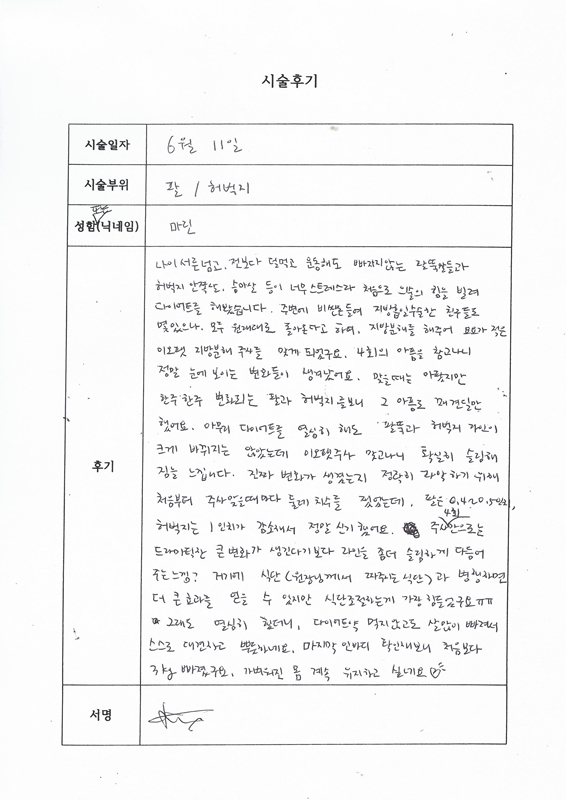 시술후기
시술일자 6월 11일
시술부위 팔 / 허벅지
성함(닉네임) 마린
후기
나이 서른넘고, 전보다 덜먹고 운동해도 빠지지않는 팔뚝살들과
허벅지 안쪽살, 승마살 등이 너무 스트레스라 처음으로 의 힘을 빌려
다이어트를 해봤습니다. 주변에 비싼돈들여 지방흡입수술한 친구들도
몇있으나, 모두 원래대로 돌아온다고 하여, 지방분해를 해주어 요요가 적은
이오랫 지방분해 주사를 맞게 되었구요. 4회의 아픔을 참고나니
정말 눈에 보이는 변화들이 생겨났어요. 맞을때는 아팠지만
한주 한주 변화되는 팔과 허벅지를보니 그 아픔도 꽤 견딜만
했어요. 아무리 다이어트를 열심히 해도 팔뚝과 허벅지 라인이
크게 바뀌지는 않았는데 이오랫주사 맞고나니 확실히 슬림해
짐을 느낍니다. 진짜 변화가 생겼는지 정확히 파악하기 위해
처음부터 주사맞을때마다 둘레 치수를 쟀었는데, 팔은 0.4
허벅지는 1 인치가 감소해서 정말 신기했어요. 주사 4회만으로는
드라마틱한 큰변화가 생긴다기보다 라인을 좀더 슬림하게 다듬어
주는느낌? 거기에 식단(원장님께서 짜주는 식단)과 병행하면
더 큰효과를 얻을 수 있지만 식단조절하는게 가장 힘들 ㅠㅠ
그래도 열심히 했더니, 다이어트약 먹지않고도 살많이 빠져서
스스로 대견하고 뿌듯하네요, 마지막 인바디 확인해보니 처음보다
빠졌구요, 가벼워진 몸 계속 유지하고 싶네요
서명